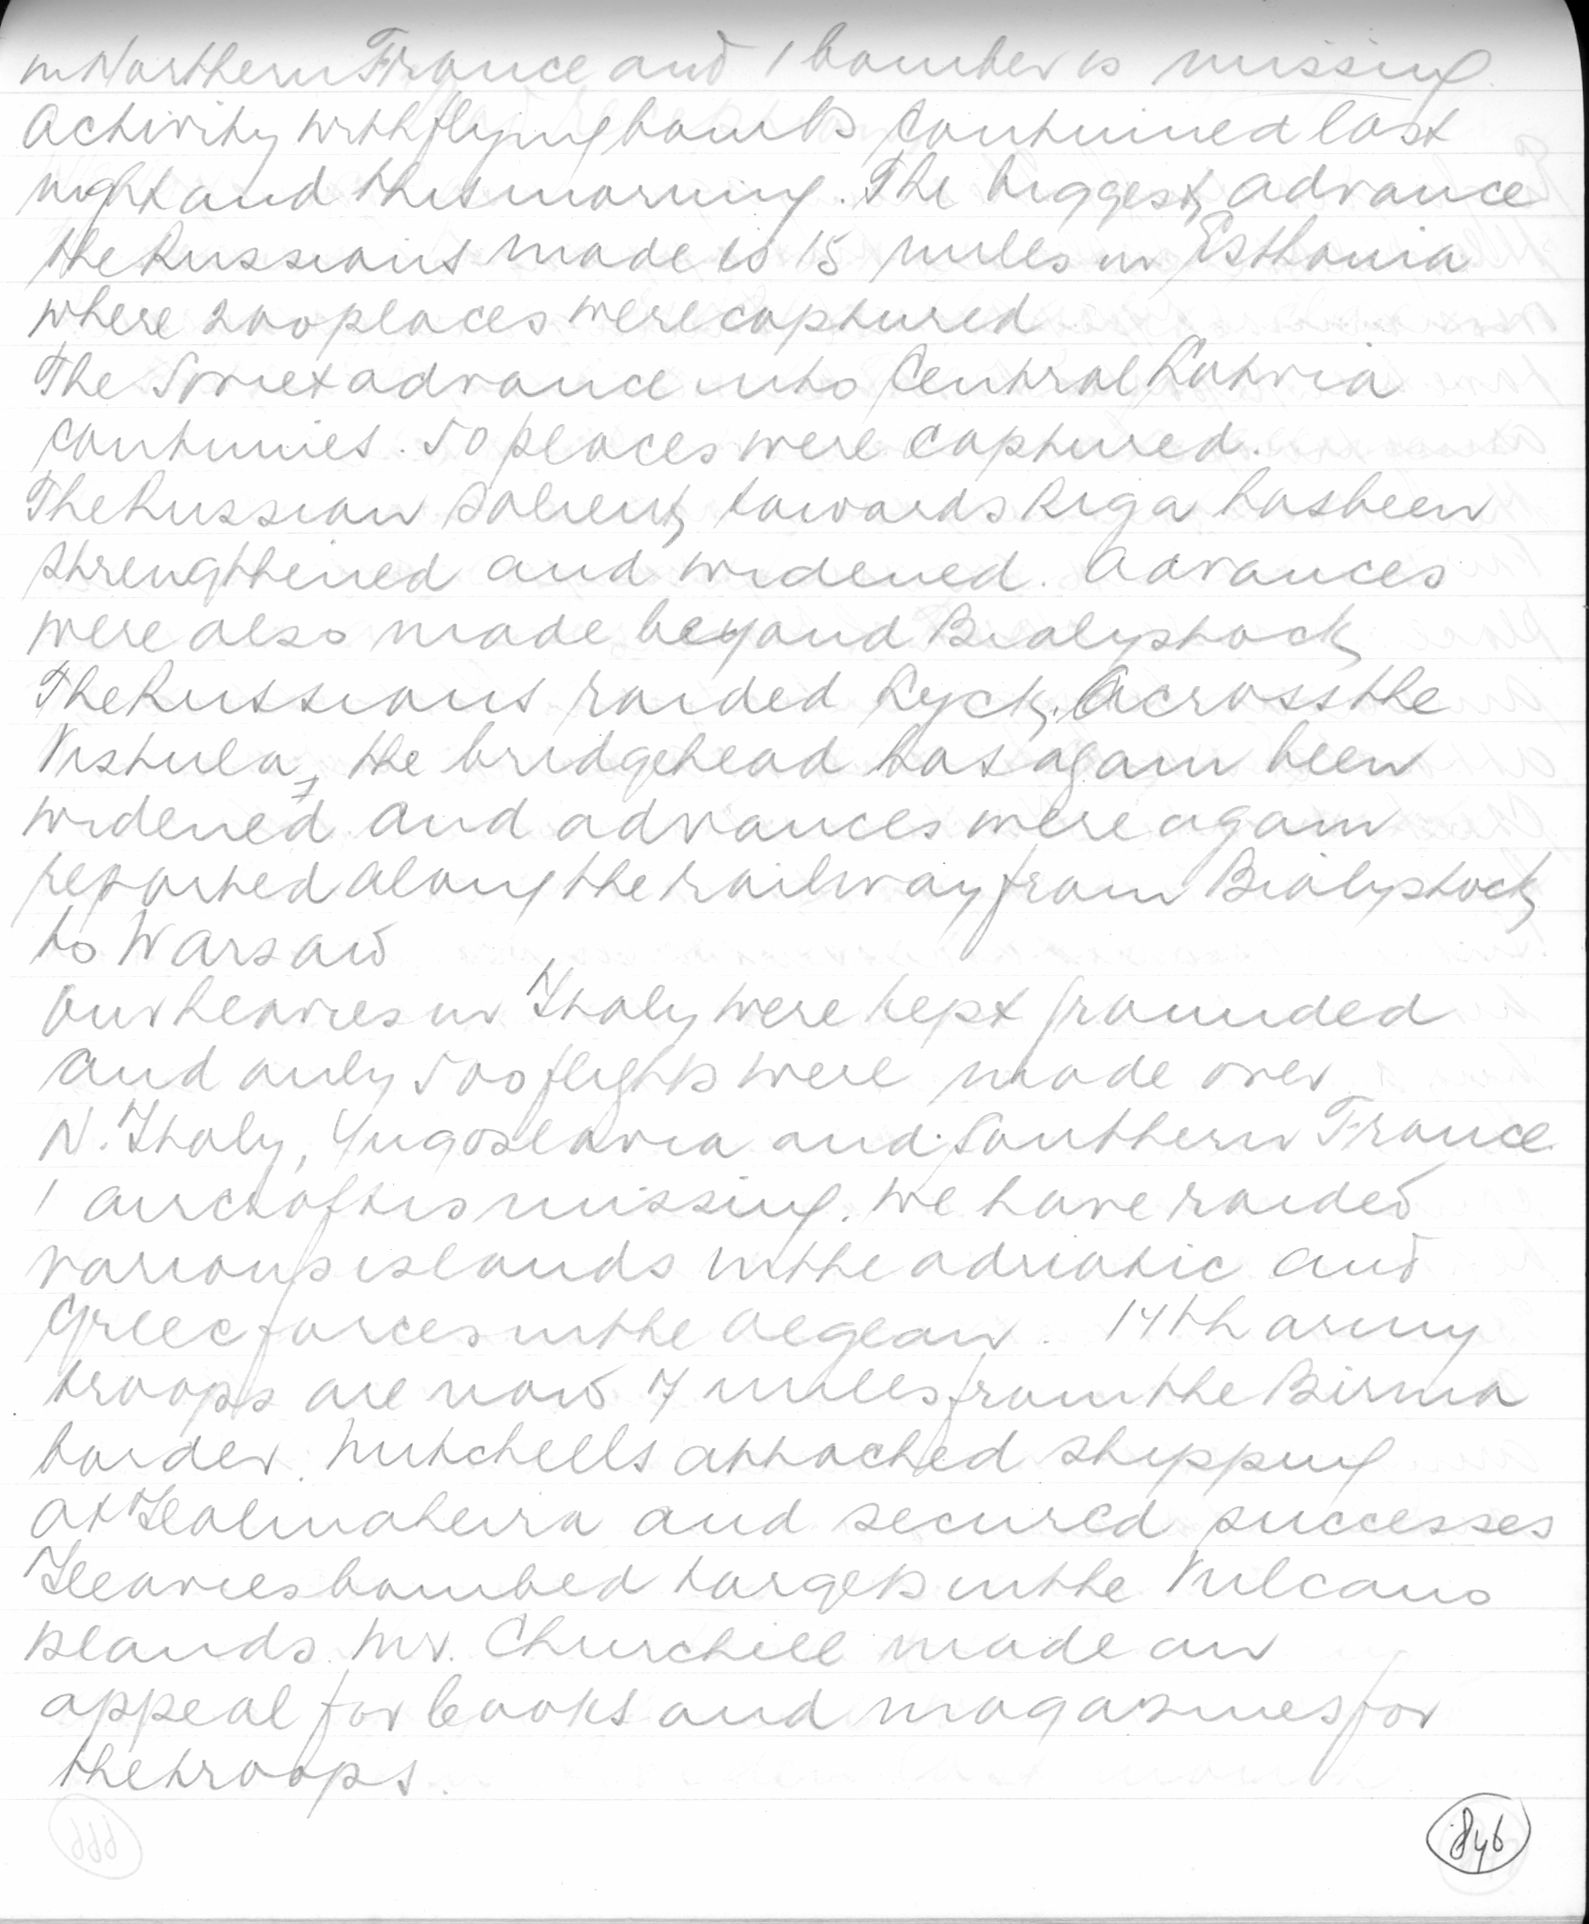 in Northern France and 1 bomber is missing.
Activity with flying bombs continued last
night and this morning. The biggest advance
the Russians made is 15 miles in Esthonia
where 200 places were captured
The Soviet advance into Central Latvia
continues. 50 places were captured.
The Russian salient towards Riga has been
strenghthened and widened. Advances
were also made beyond Bialystock
The Russians raided Lyck. Across the
Vistula, the bridgehead has again been
widened and advances were again
reported along the railway from Bialystock
to Warsaw
Our heavies in Italy were kept grounded
and only 500 flights were made over
N. Italy, Yugoslavia and Southern France
1 aircraft is missing. We have raided
various islands in the Adriatic and
Greec forces in the Aegean. 14th army
troops are now 7 miles from the Birma
border. Mitchells attacked shipping
at Halmaheira and secured successes
Heavies bombed targets in the Vulcano
islands. Mr. Churchill made an
appeal for books and magazines for
the troops.
846